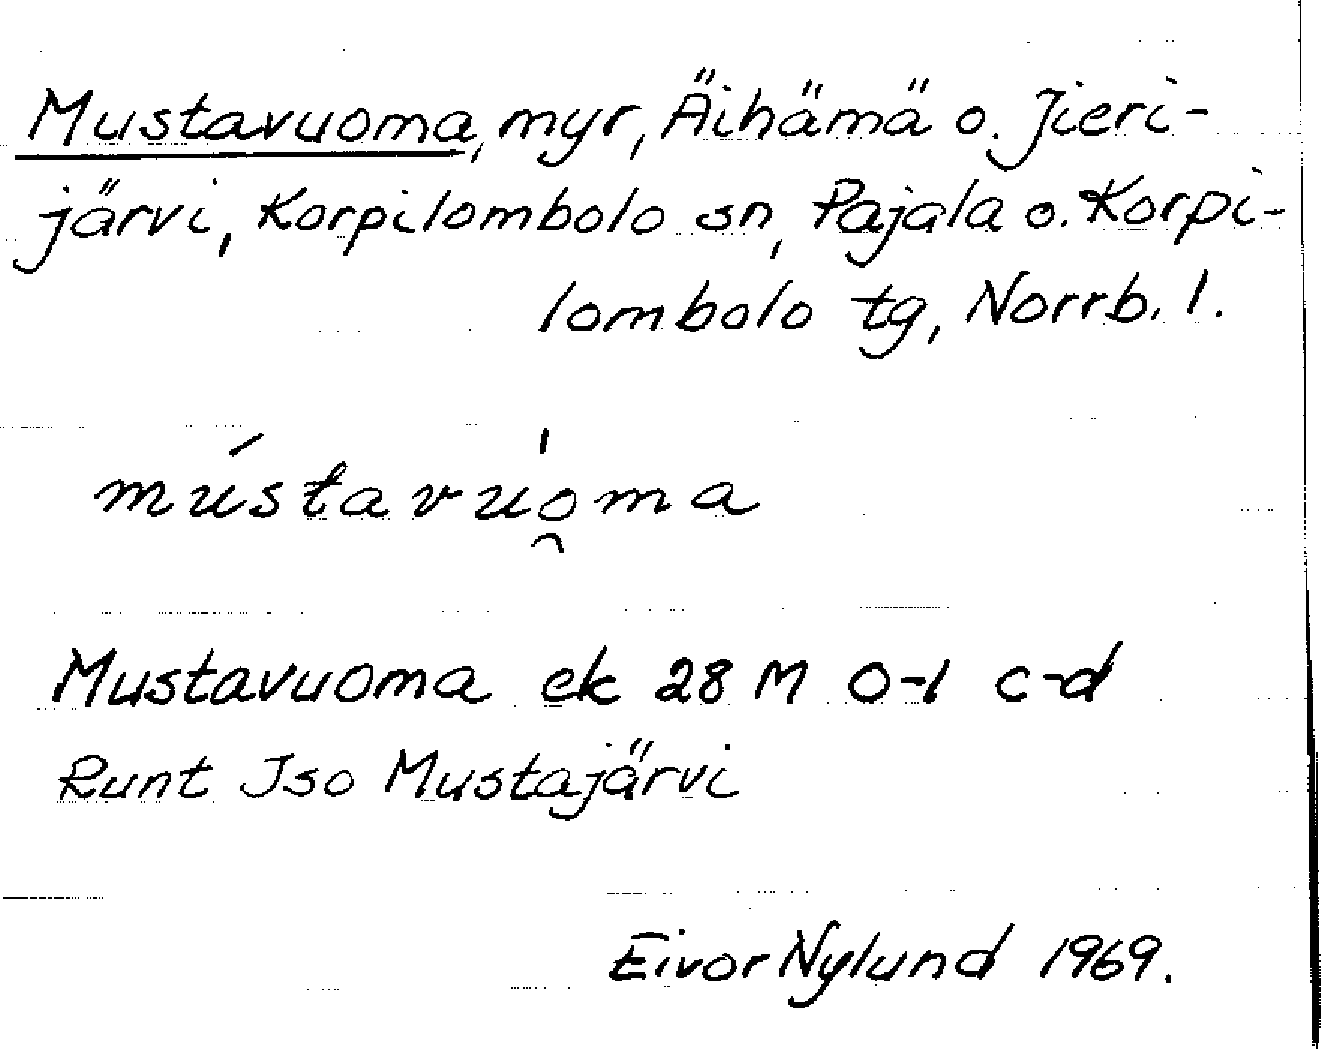 Mustavuoma, myr, Äihämä o. Jieri-
järvi, Korpilombolo sn, Pajala o. Korpi-
lombolo tg, Norrb. l.
mústavu̯o̍ma
Mustavuoma ek 28 M 0-1 c-d
Runt Iso Mustajärvi
Eivor Nylund 1969.